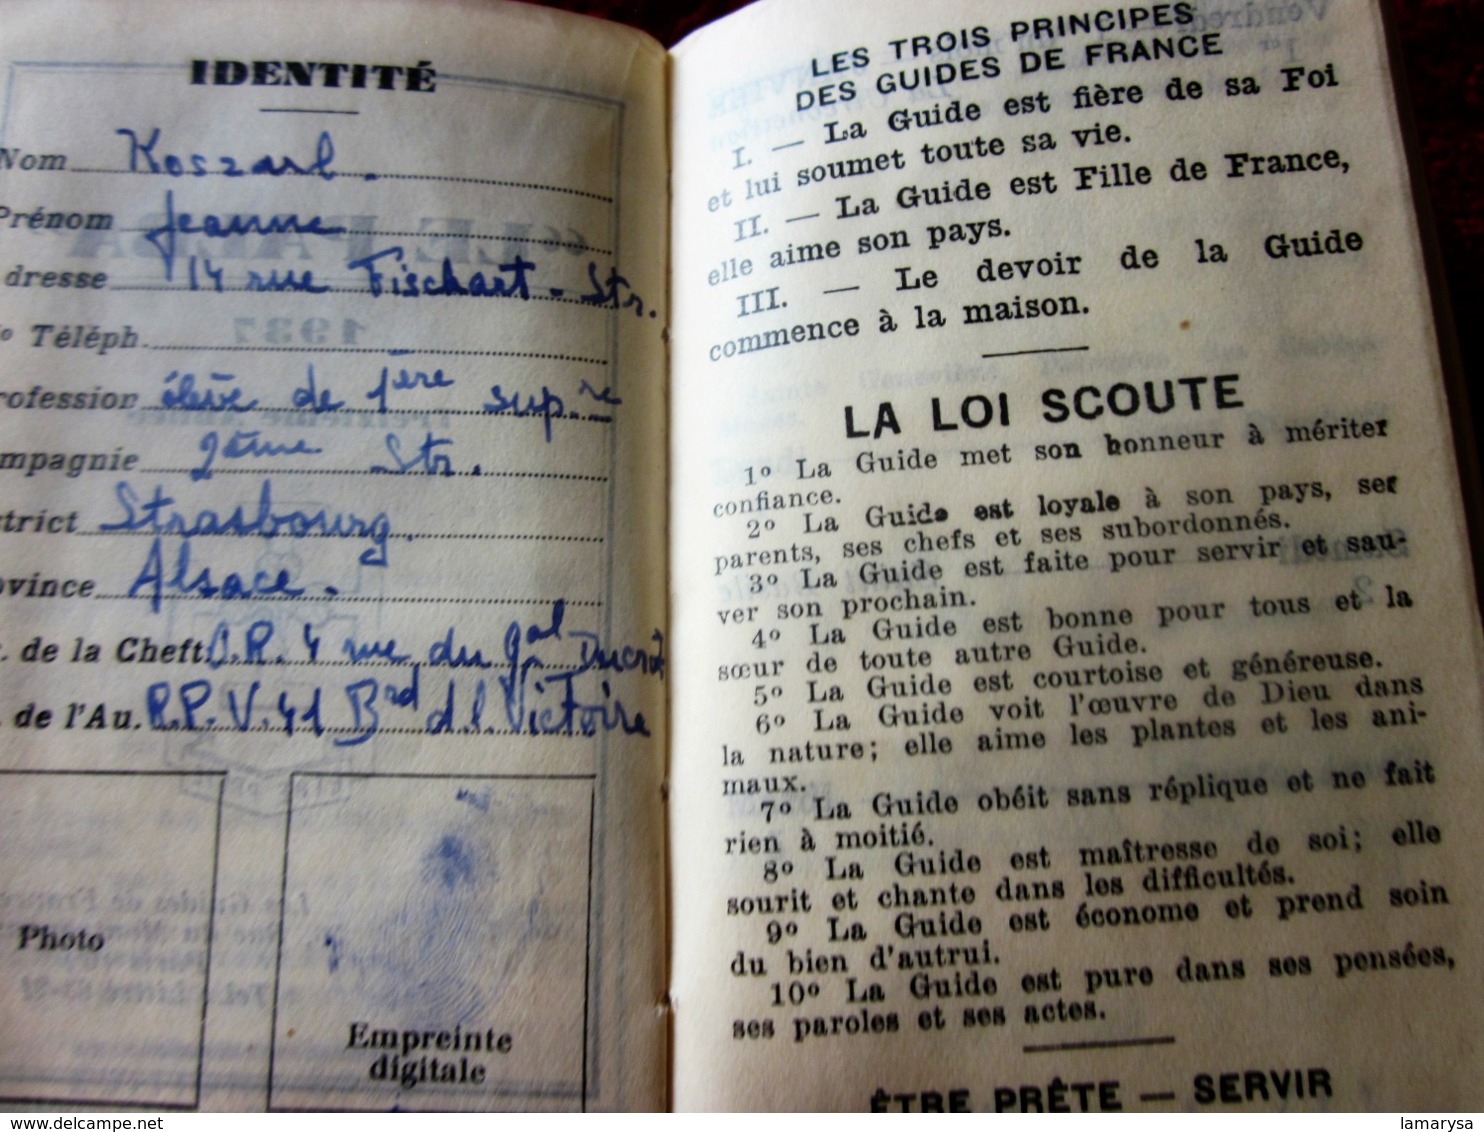 IDENTITÉ
Nom Koszarl.
Prénom Jeanne
dresse 14 rue Fischart - Str.
o Téléph.
rofession élève de 1ère sup.re
mpagnie 2ème Str.
strict Strasbourg.
ovince Alsace.
. de la Cheft. 4 rue du gal Ducrot
. de l'Au. R.P. V. 41 Brd d.l. Victoire
Photo
Empreinte
digitale
LES TROIS PRINCIPES
DES GUIDES DE FRANCE
I. — La Guide est fière de sa Foi
et lui soumet toute sa vie.
II. — La Guide est Fille de France,
elle aime son pays.
III. — Le devoir de la Guide
commence à la maison.
LA LOI SCOUTE
1º La Guide met son honneur à mériter
confiance.
2º La Guide est loyale à son pays, ses
parents, ses chefs et ses subordonnés.
3º La Guide est faite pour servir et sau-
ver son prochain.
4º La Guide est bonne pour tous et la
sœur de toute autre Guide.
5º La Guide est courtoise et généreuse.
6º La Guide voit l'œuvre de Dieu dans
la nature; elle aime les plantes et les ani-
maux.
7º La Guide obéit sans réplique et ne fait
rien à moitié.
8º La Guide est maîtresse de soi; elle
sourit et chante dans les difficultés.
9º La Guide est économe et prend soin
du bien d'autrui.
10º La Guide est pure dans ses pensées,
ses paroles et ses actes.
ÊTRE PRÊTE — SERVIR
www.delcampe.net
lamarysa